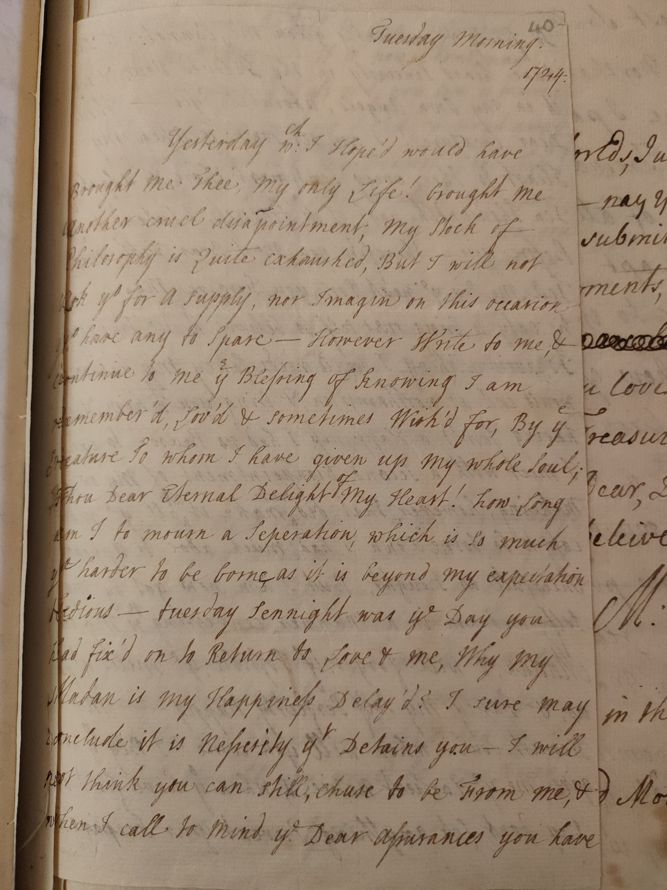 40
Tuesday Morning.
1724.
Yesterday wch: I Hope'd would have
Brought me Thee, My only Life! brought me
another cruel disapointment, My Stock of
Philosophy is Quite exhausted, But I will not
ask yo for A supply, nor Imagin on this occasion
yo have any to Spare — However Write to me, &
continue to me ye Blessing of Knowing I am
remember'd, Lov'd & sometimes Wish'd for, By ye
Creature to whom I have given up My whole Soul;
Thou Dear Eternal Delight of My Heart! how Long
am I to mourn a Seperation, which is so much
ye harder to be borne, as it is beyond my expectation
tedious — tuesday Sennight was ye Day you
had fix'd on to Return to Love & me, Why My
Madan is my Happiness Delay'd? I sure may
conclude it is Nessesity yt Detains you — I will
not think you can still, chuse to be From me, &
when I call to Mind ye Dear assurances you have
orlds, Iu
— nay y
submit
oments,
u love
Treasur
Dear, I
beleive
M:
in th
d Mo